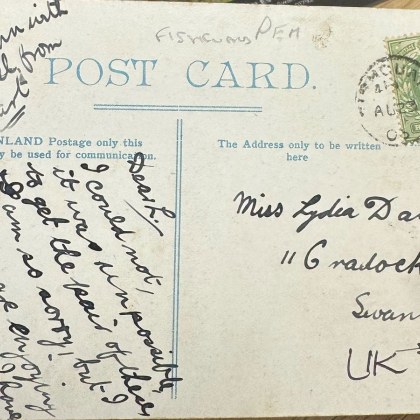 FISHGUARD PEM
POST CARD.
NLAND Postage only this
y be used for communication.
The Address only to be written
here
with
from
Dear L
I could not,
it was impossible,
to get the pair of these
I am so sorry! but I
enjoying
Miss Lydia Da
11 Cradock
Swan
UK
AU